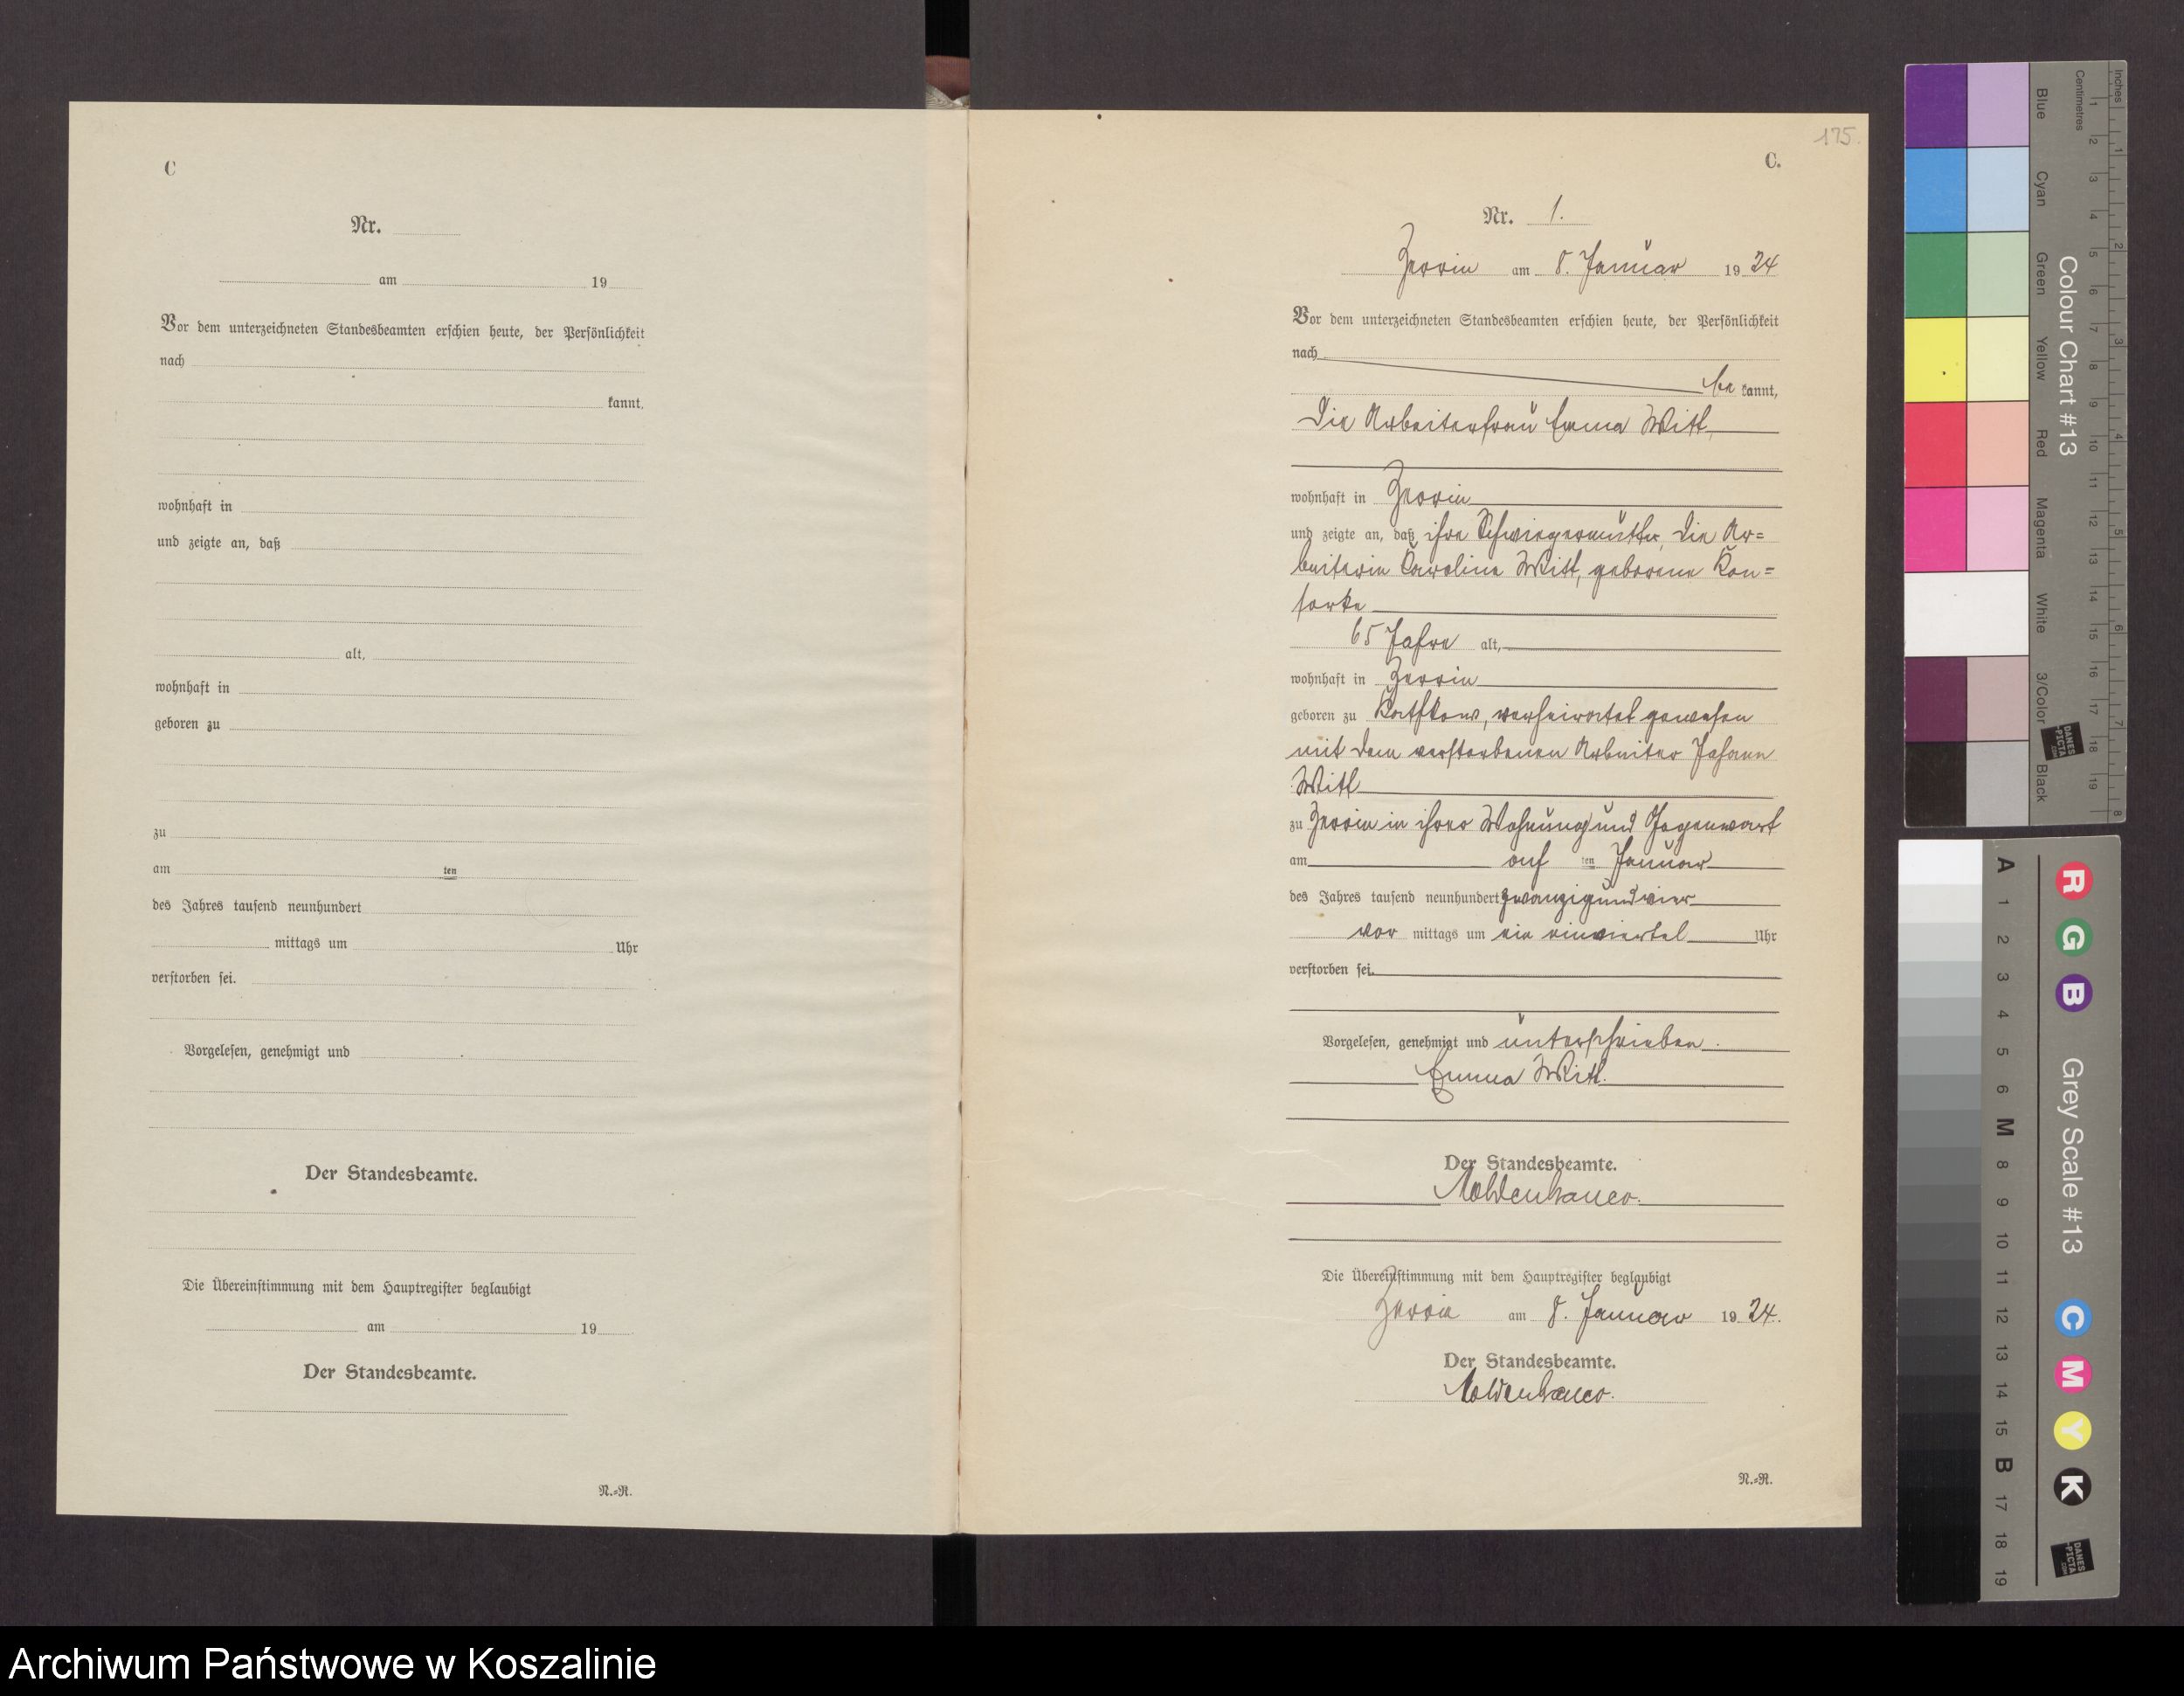 C
Nr.
am 19
Vor dem unterzeichneten Standesbeamten erschien heute, der Persönlichkeit
nach
kannt,
wohnhaft in
und zeigte an, daß
alt,
wohnhaft in
geboren zu
zu
am ten
des Jahres tausend neunhundert
mittags um Uhr
verstorben sei.
Vorgelesen, genehmigt und
Der Standesbeamte.
Die Übereinstimmung mit dem Hauptregister beglaubigt
am 19
Der Standesbeamte.
N.=R.
175.
C.
Nr. 1.
Zerrin am 8. Januar 1924
Vor dem unterzeichneten Standesbeamten erschien heute, der Persönlichkeit
nach
be kannt,
die Arbeiterfrau Emma Witt,
wohnhaft in Zerrin
und zeigte an, daß ihre Schwiegermutter, die Ar=
beiterin Karoline Witt, geborene Kon=
sorke
65 Jahre alt,
wohnhaft in Zerrin
geboren zu verheiratet gewesen
mit dem verstorbenen Arbeiter Johann
Witt
zu Zerrin in ihrer Wohnung und Gegenwart
am ten Januar
des Jahres tausend neunhundert zwanzigundvier
vor mittags um ein einviertel Uhr
verstorben sei.
Vorgelesen, genehmigt und unterschrieben.
Emma Witt.
Der Standesbeamte.
Moldenhauer.
Die Übereinstimmung mit dem Hauptregister beglaubigt
Zerrin am 8. Januar 1924.
Der Standesbeamte.
Moldenhauer.
N.=R.
Inches
Centimetres
1 2 3 4 5 6 7 8 9 10 11 12 13 14 15 16 17 18 19
1 2 3 4 5 6 7 8
Blue
Cyan
Green
Yellow
Red
Magenta
White
3/Color
Black
Colour Chart #13
DANES
-PICTA
.COM
A 1 2 3 4 5 6 M 8 9 10 11 12 13 14 15 B 17 18 19
R G B
Grey Scale #13
C M Y K
DANES
-PICTA
.COM
Archiwum Państwowe w Koszalinie